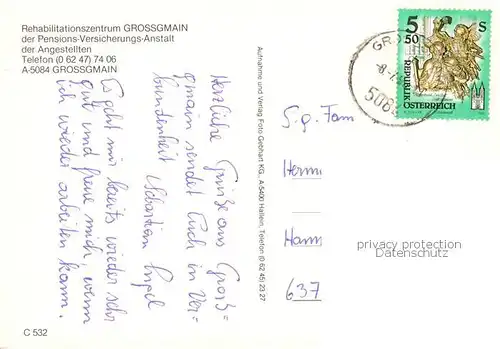 Rehabilitationszentrum GROSSGMAIN
der Pensions-Versicherungs-Anstalt
der Angestellten
Telefon (0 62 47) 74 06
A-5084 GROSSGMAIN
Herzliche Grüße aus Groß=
gmain sendet Euch in Ver=
bundenheit Sebastian
Es geht mir bereits wieder sehr
gut und freue mich, wenn
ich wieder arbeiten kann.
C 532
Aufnahme und Verlag Foto Gebhart KG., A-5400 Hallein, Telefon (0 62 45) 23 27
5 S
50
REPUBLIK
ÖSTERREICH
S.g. Fam
Herrn
Hann
637
privacy protection
Datenschutz